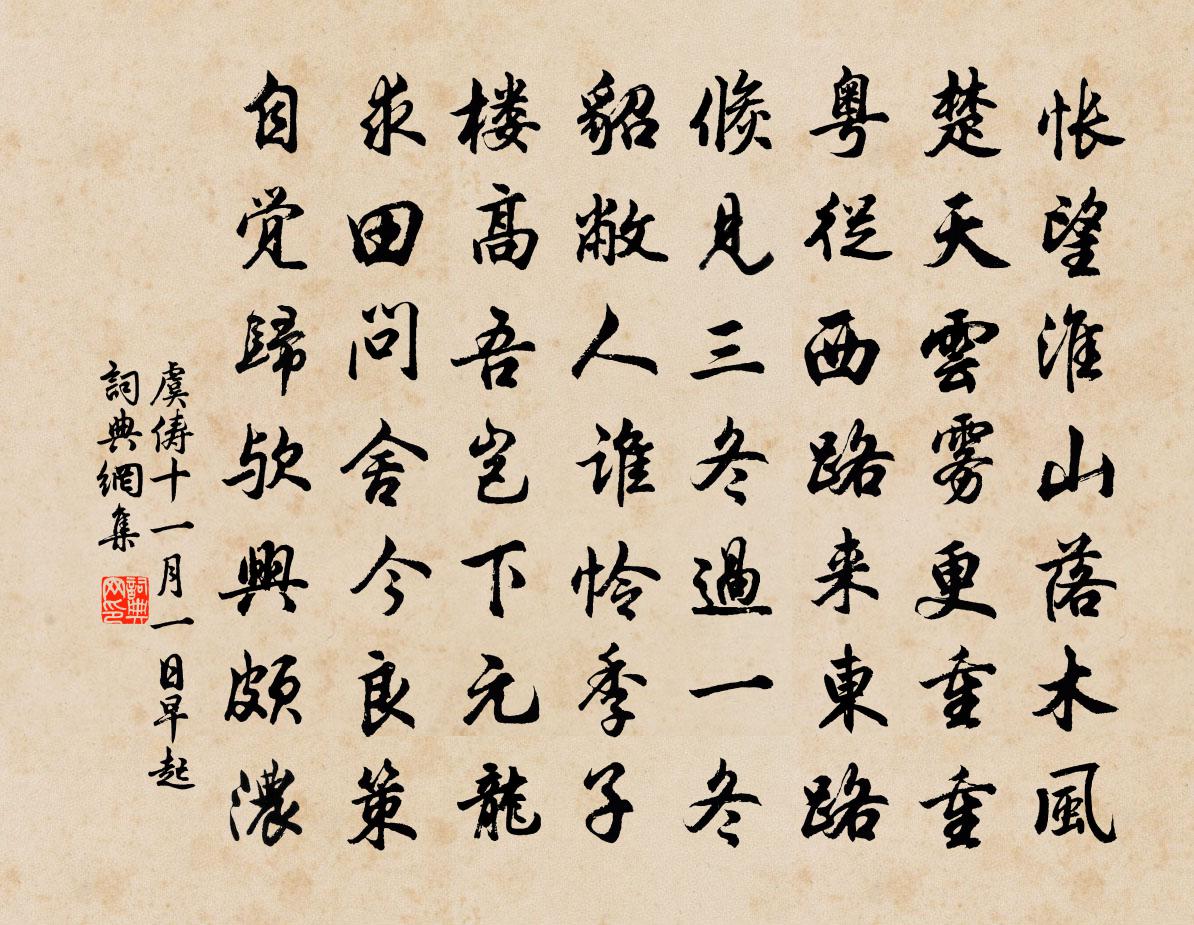 悵望淮山落木風
楚天雲雾更重重
粤從西路来東路
倐見三冬過一冬
貂敝人誰怜季子
楼高吾岂下元龍
求田問舍今良策
自覚歸欤興頗濃
虞儔十一月一日早起
詞典網集
詞典网印